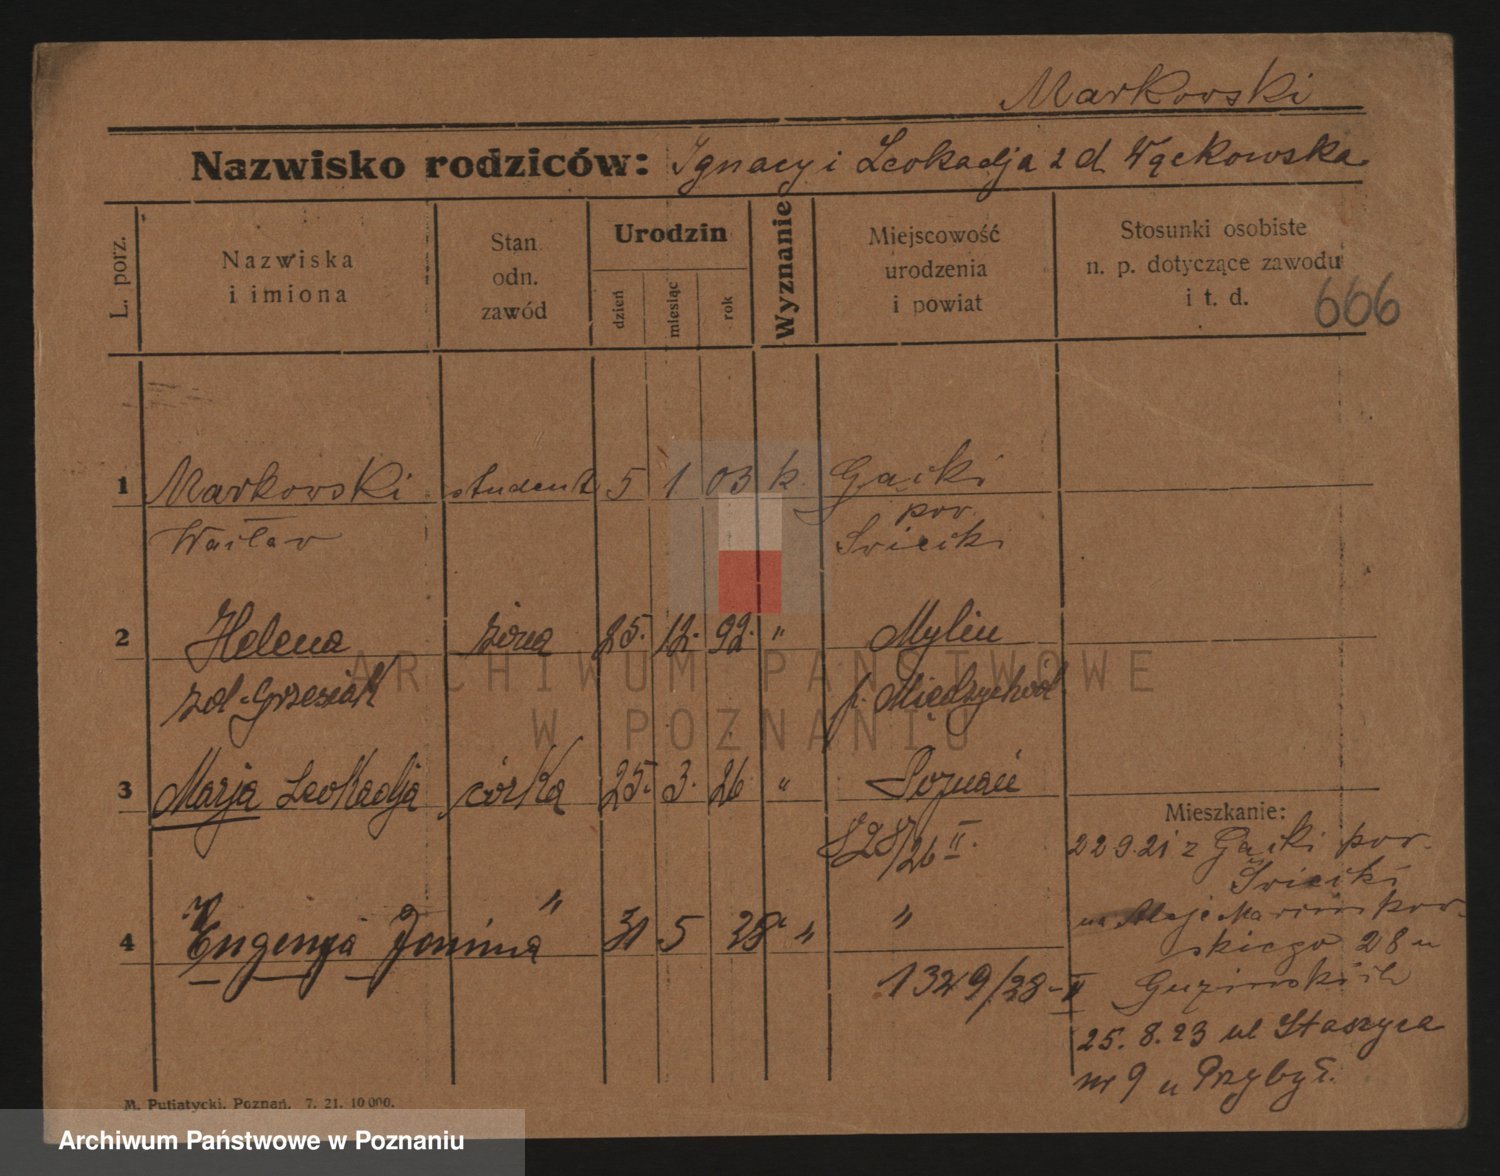 Markowski
Nazwisko rodziców: Ignacy i Leokadja z d. Wąckowska
L. porz.
Nazwiska
i imiona
Stan
odn.
zawód
Urodzin
dzień
miesiąc
rok
Wyznanie
Miejscowość
urodzenia
i powiat
Stosunki osobiste
n. p. dotyczące zawodu
i t. d.
666
1 Markowski student 5 1 03 k. Gacki
Wacław pow.
Świecki
2 Helena żona 25. 12. 92. " Mylin
zd. Grzesiak p. Międzychód
3 Marja Leokadja córka 25. 3. 26 " Poznań
828/26 II.
4 Eugenja Janina " 31 5 28 " "
1349/28-II
Mieszkanie:
22 9.21 z Gacki pow.
Świecki
na Aleje Marcinkow-
skiego 28 u
25. 8. 23 ul Staszyca
nr 9 u Przybył.
M. Putiatycki, Poznań. 7. 21. 10 000.
ARCHIWUM PAŃSTWOWE
W POZNANIU
Archiwum Państwowe w Poznaniu